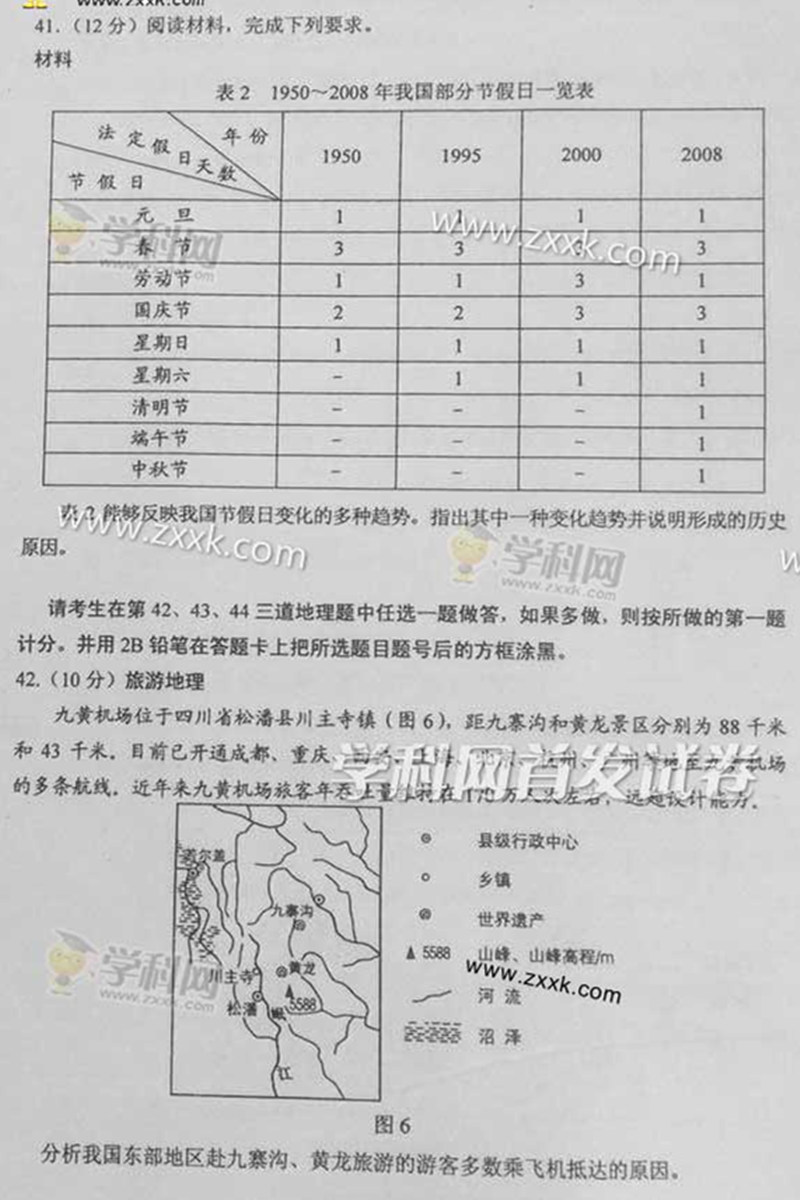 www.zxxk.com
41.（12 分）阅读材料，完成下列要求。
材料
表 2　1950～2008 年我国部分节假日一览表
法定假日天数　年份　节假日　1950　1995　2000　2008
元　旦　1　1　1　1
春　节　3　3　3　3
劳动节　1　1　3　1
国庆节　2　2　3　3
星期日　1　1　1　1
星期六　-　1　1　1
清明节　-　-　-　1
端午节　-　-　-　1
中秋节　-　-　-　1
学科网
www.zxxk.com
www.zxxk.com
表 2 能够反映我国节假日变化的多种趋势。指出其中一种变化趋势并说明形成的历史
原因。
www.zxxk.com
学科网
www.zxxk.com
请考生在第 42、43、44 三道地理题中任选一题做答，如果多做，则按所做的第一题
计分。并用 2B 铅笔在答题卡上把所选题目题号后的方框涂黑。
42.（10 分）旅游地理
九黄机场位于四川省松潘县川主寺镇（图 6），距九寨沟和黄龙景区分别为 88 千米
和 43 千米。目前已开通成都、重庆、州等地至九黄机场
的多条航线。近年来九黄机场旅客年吞吐量维持在 170 万人次左右，远超设计能力。
学科网首发试卷
若尔盖
九寨沟
川主寺
黄龙
5588
松潘
岷
江
县级行政中心
乡镇
世界遗产
5588　山峰、山峰高程/m
河　流
沼　泽
学科网
www.zxxk.com
www.zxxk.com
图 6
分析我国东部地区赴九寨沟、黄龙旅游的游客多数乘飞机抵达的原因。